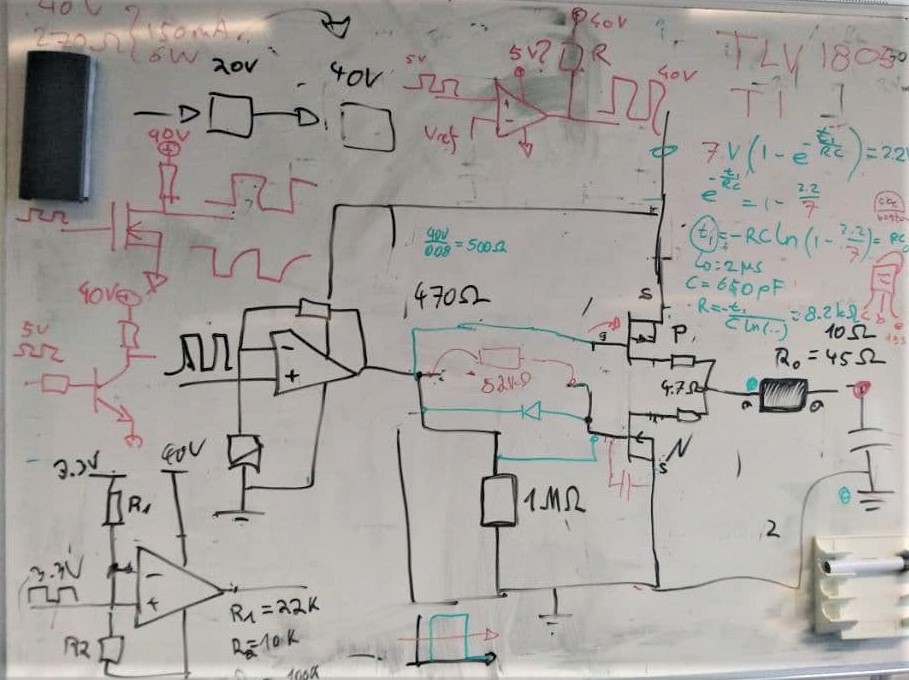 40V
270Ω { 150mA
6W
20V
40V
40V
5V?
R
5V
40V
Vref
TLV 1805
TI
7V(1-e^-t₁/RC)=2.2V
e^-t₁/RC = 1-2.2/7
t₁=-RC ln(1-2.2/7)= RC
t₀=2μs
C=680pF
R=-t₁/C ln(..)=8.2kΩ
90V
40V/0.08 = 500Ω
470Ω
40V
5V
S
P
g
10Ω
R₀=45Ω
4.7Ω
52kΩ
N
S
1MΩ
2
3.3V
40V
R1
3.3V
R2
R1=22K
R2=10K
100k
-
+
-
+